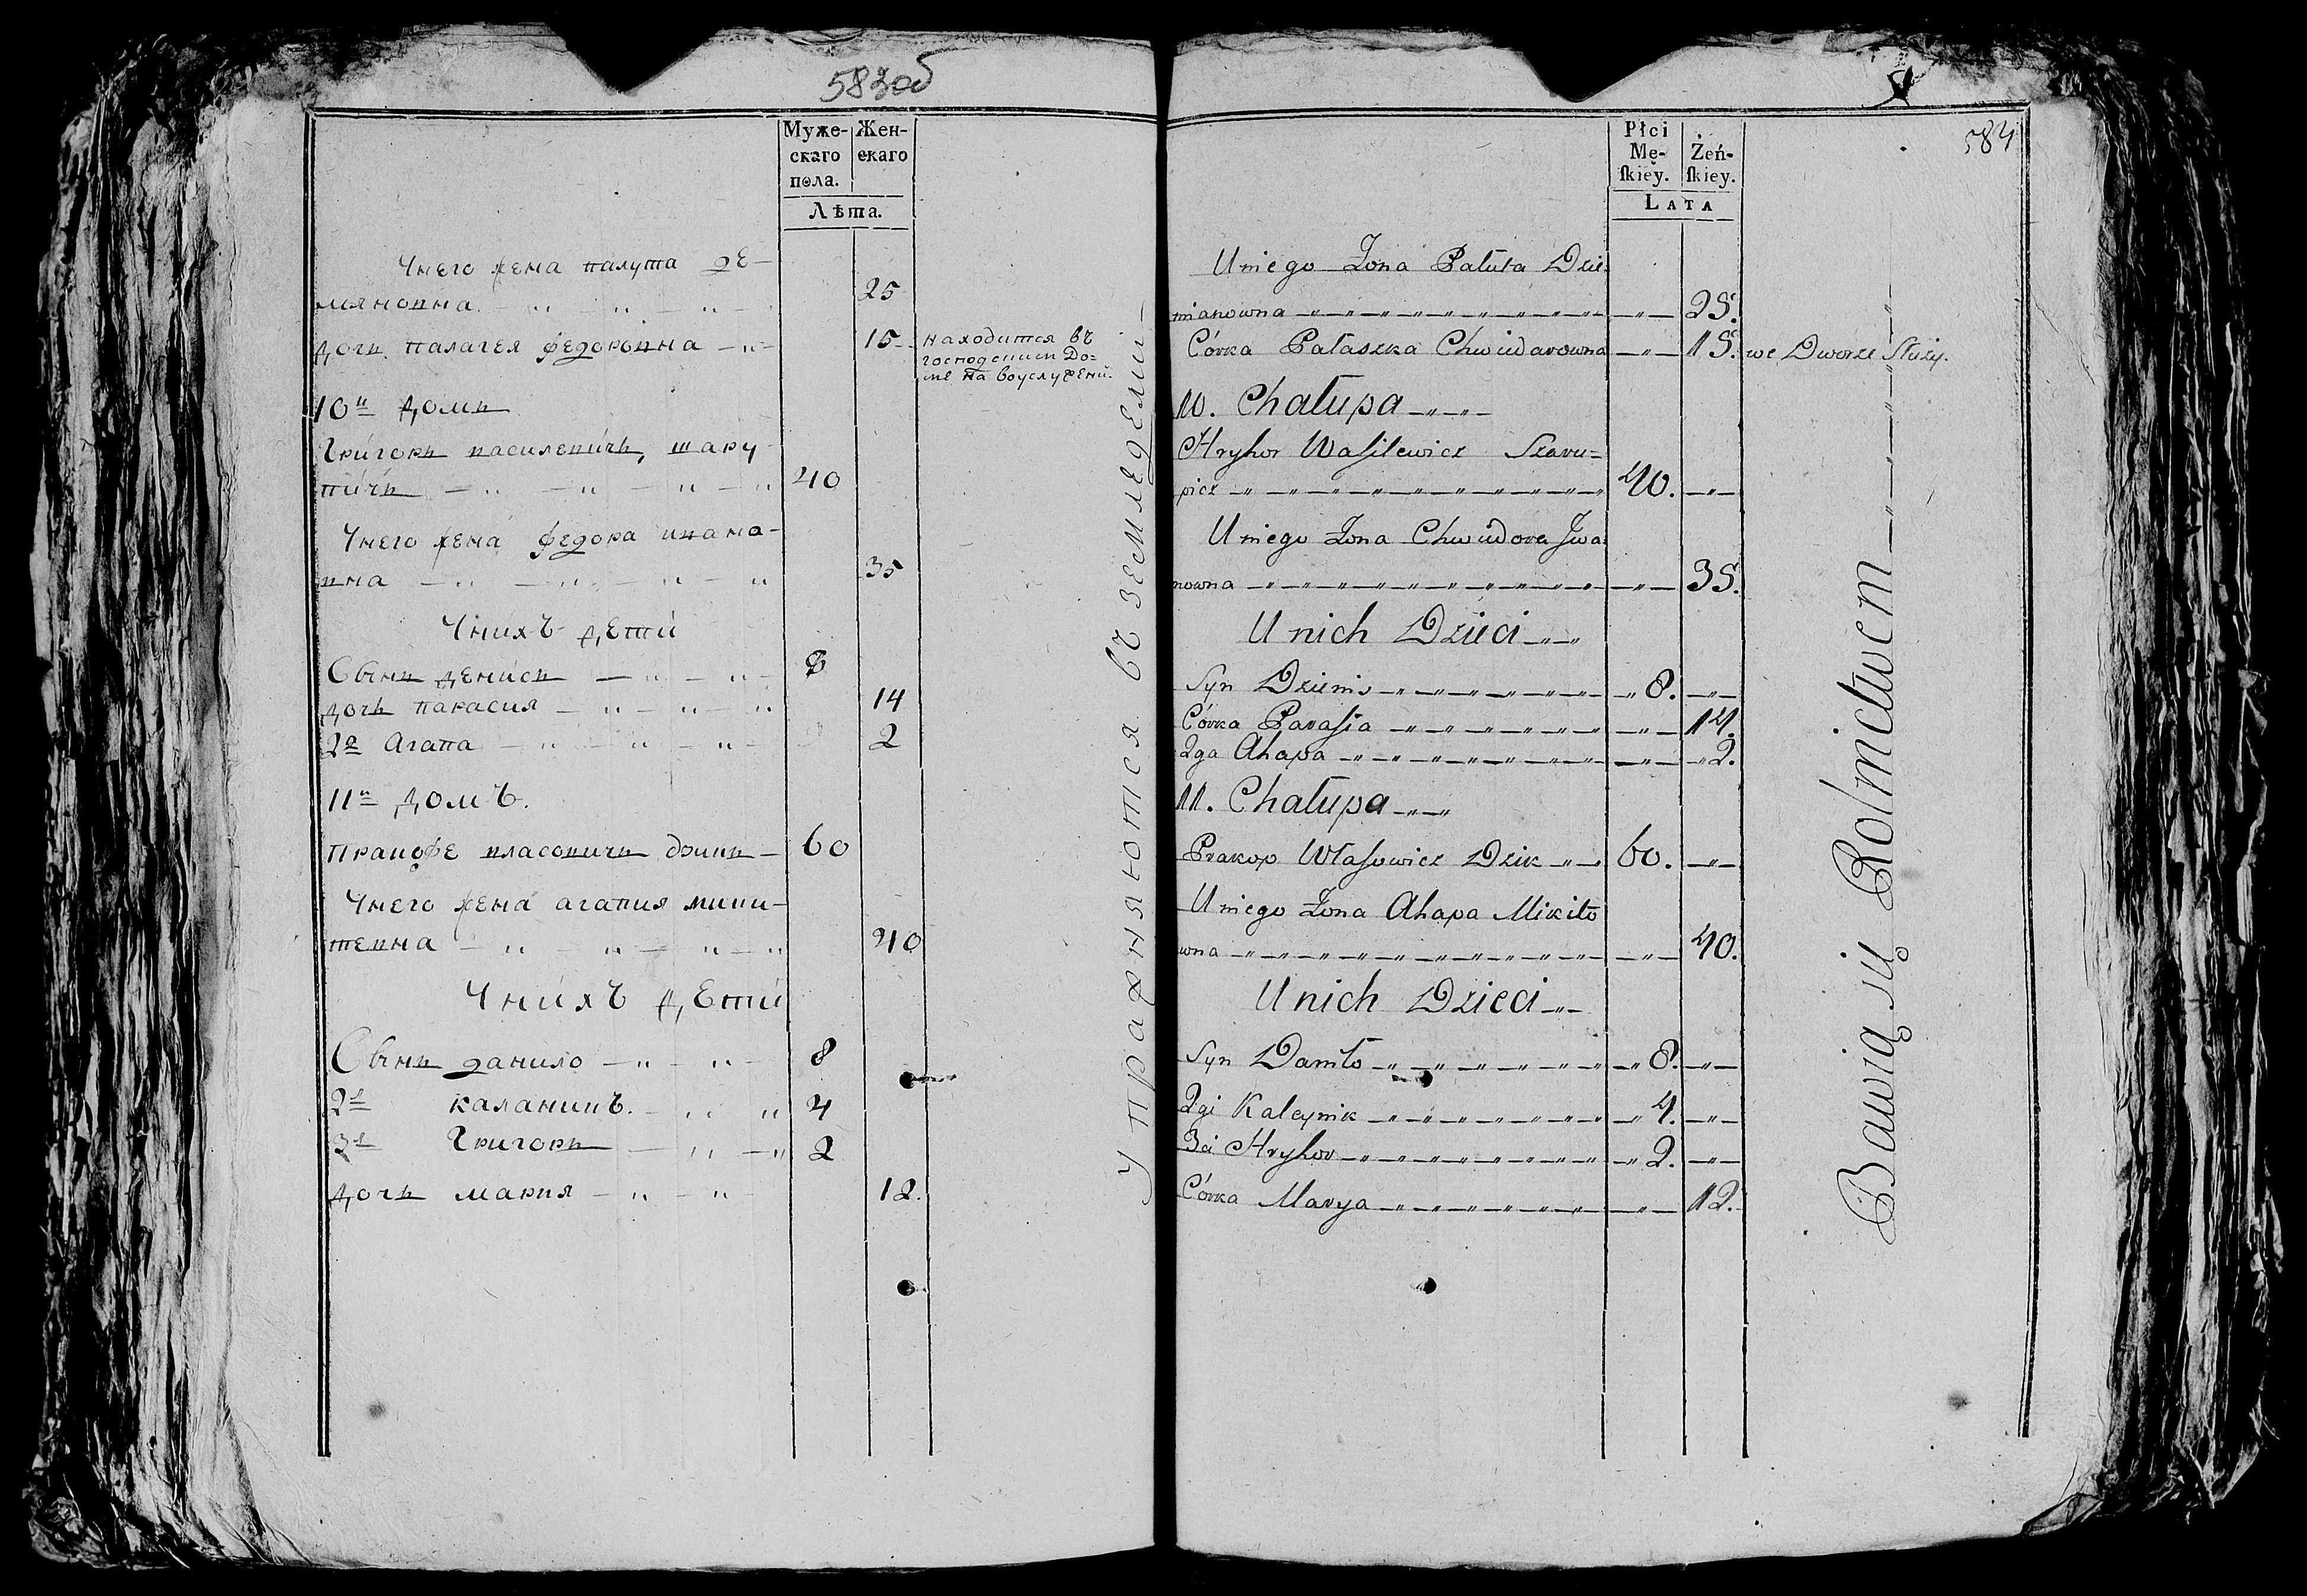 583об
Муже-
скаго
пола.
Жен-
скаго
Лѣта.
Унего жена палута де-
мяновна 25
дочь палагея федоровна 15
находится въ
господскимъ До-
ме на воуслужени
10й домъ
Григоръ василевичъ, шару-
пичъ 40
Унего жена федора ивано-
вна 35
Унихъ дети
Сынъ денисъ 8
дочь парасия 14
2я Агапа 2
11й домъ.
Пракофе власовичъ дзикъ 60
Унего жена агапия мики-
тевна 40
Унихъ дети
Сынъ данило 8
2й каланикъ 4
3й Григоръ 2
дочь мария 12.
Упражняются въ земледелии
584
Płci
Mę-
ſkiey.
Żeń-
ſkiey.
LATA
Uniego Żona Pałuta Dzie-
mianowna 25.
Córka Pałaszka Chwiedarowna 15. we Dworze Służy.
10. Chałupa
Hryhor Wasilewicz Szaru=
picz 40.
Uniego Żona Chwiedora Jwa-
nowna 35.
Unich Dzieci
Syn Dzienis 8.
Córka Parasia 14.
2ga Ahapa 2.
11. Chałupa
Prakop Własowicz Dzik 60.
Uniego Żona Ahapa Mikito
wna 40.
Unich Dzieci
Syn Daniło 8.
2gi Kaleynik 4.
3ci Hryhor 2.
Córka Marya 12.
Bawią się Rolnictwem